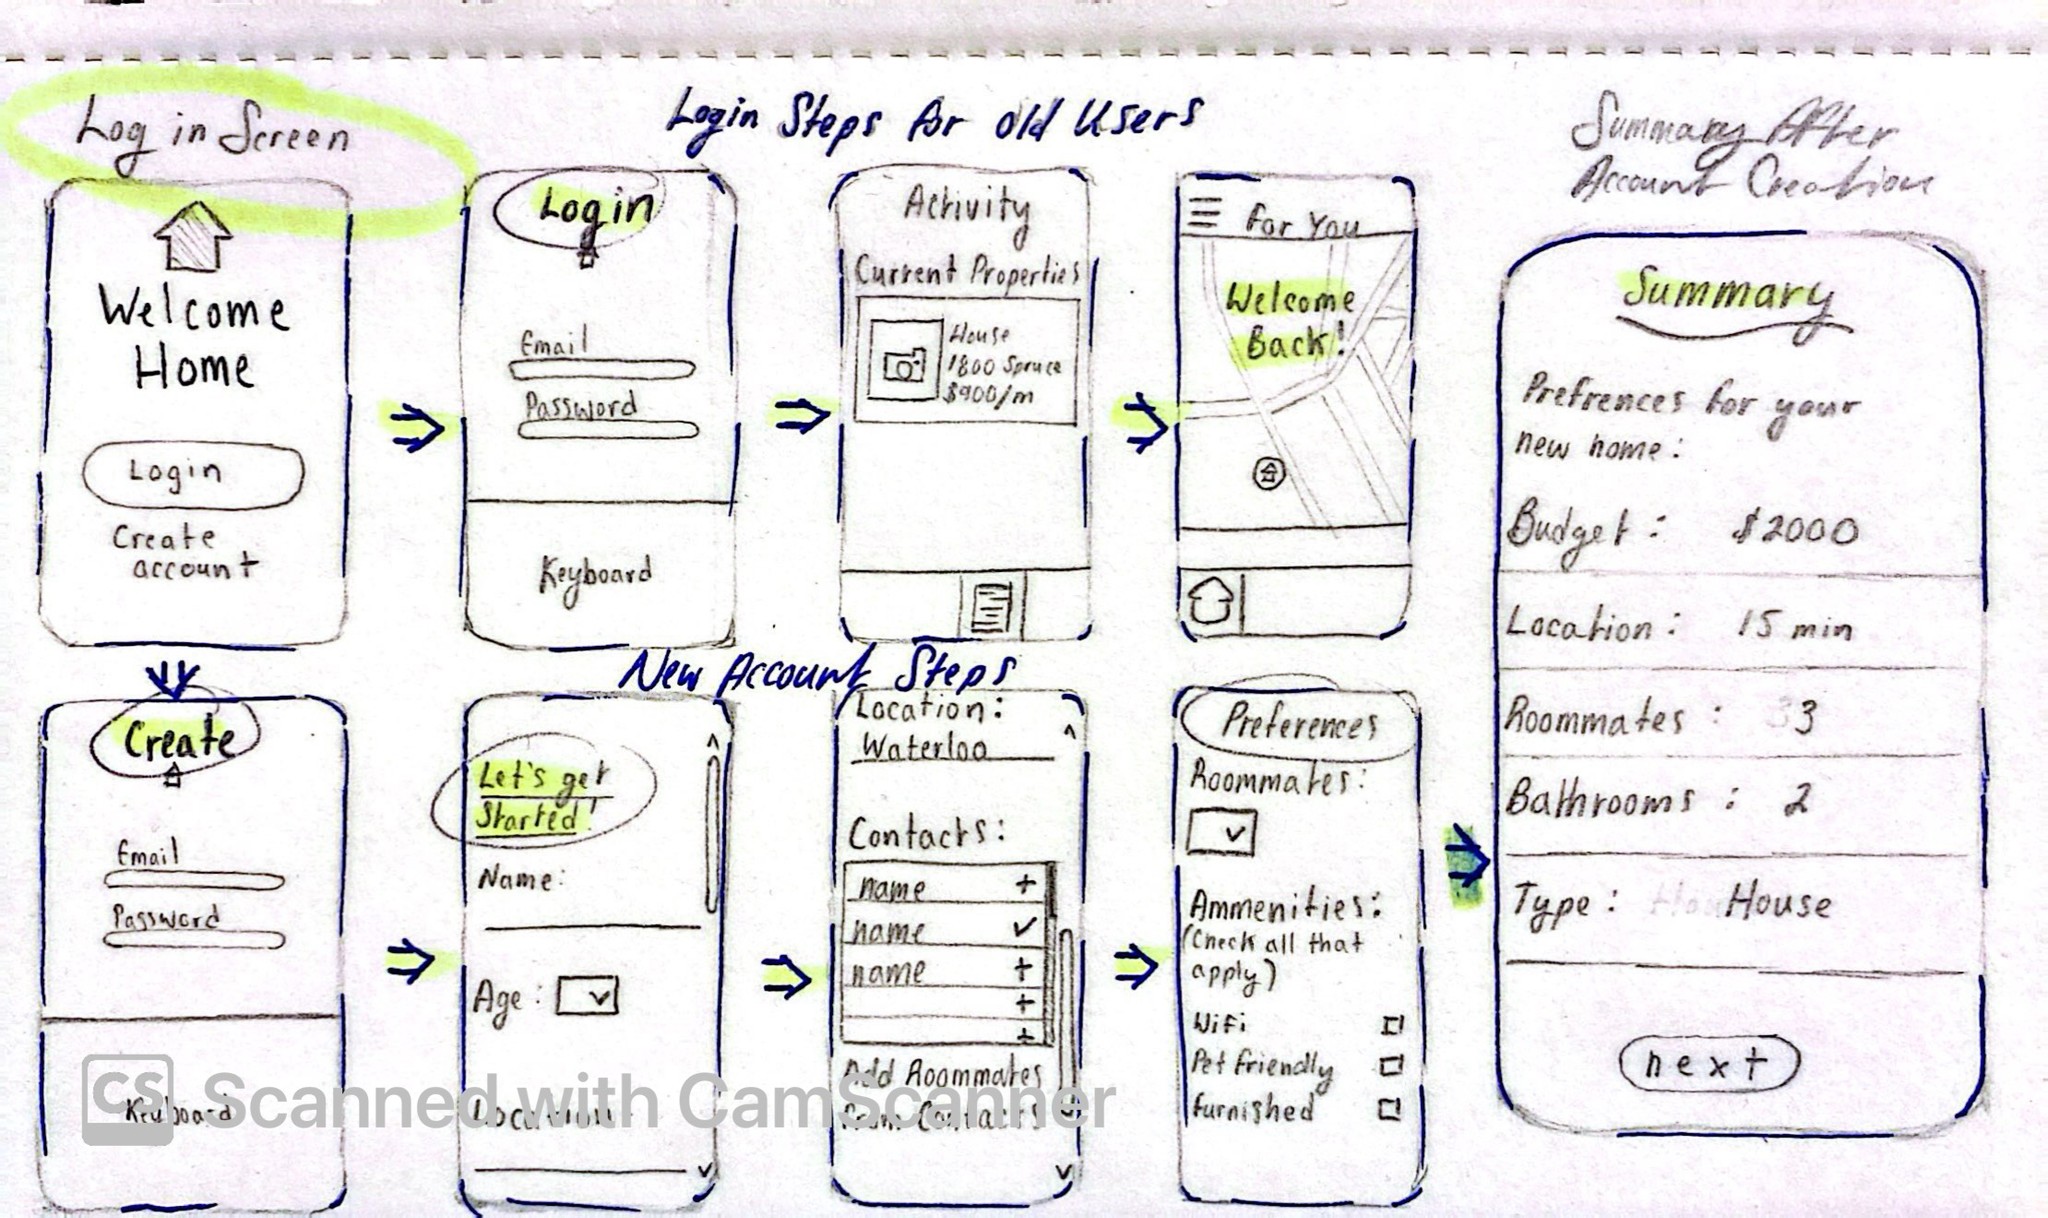 Log in Screen
Welcome
Home
Login
Create
account
Login Steps for old Users
Login
Email
Password
Keyboard
Activity
Current Properties
House
1800 Spruce
$900/m
For You
Welcome
Back!
New Account Steps
Create
Email
Password
Keyboard
Let's get
Started!
Name:
Age:
Location:
Location:
Waterloo
Contacts:
name +
name ✓
name +
+
+
Add Roommates
from Contacts
Preferences
Roommates:
Ammenities:
(Check all that
apply)
Wifi
Pet friendly
furnished
Summary After
Account Creation
Summary
Prefrences for your
new home:
Budget: $2000
Location: 15 min
Roommates: 3
Bathrooms: 2
Type: House
next
CS Scanned with CamScanner